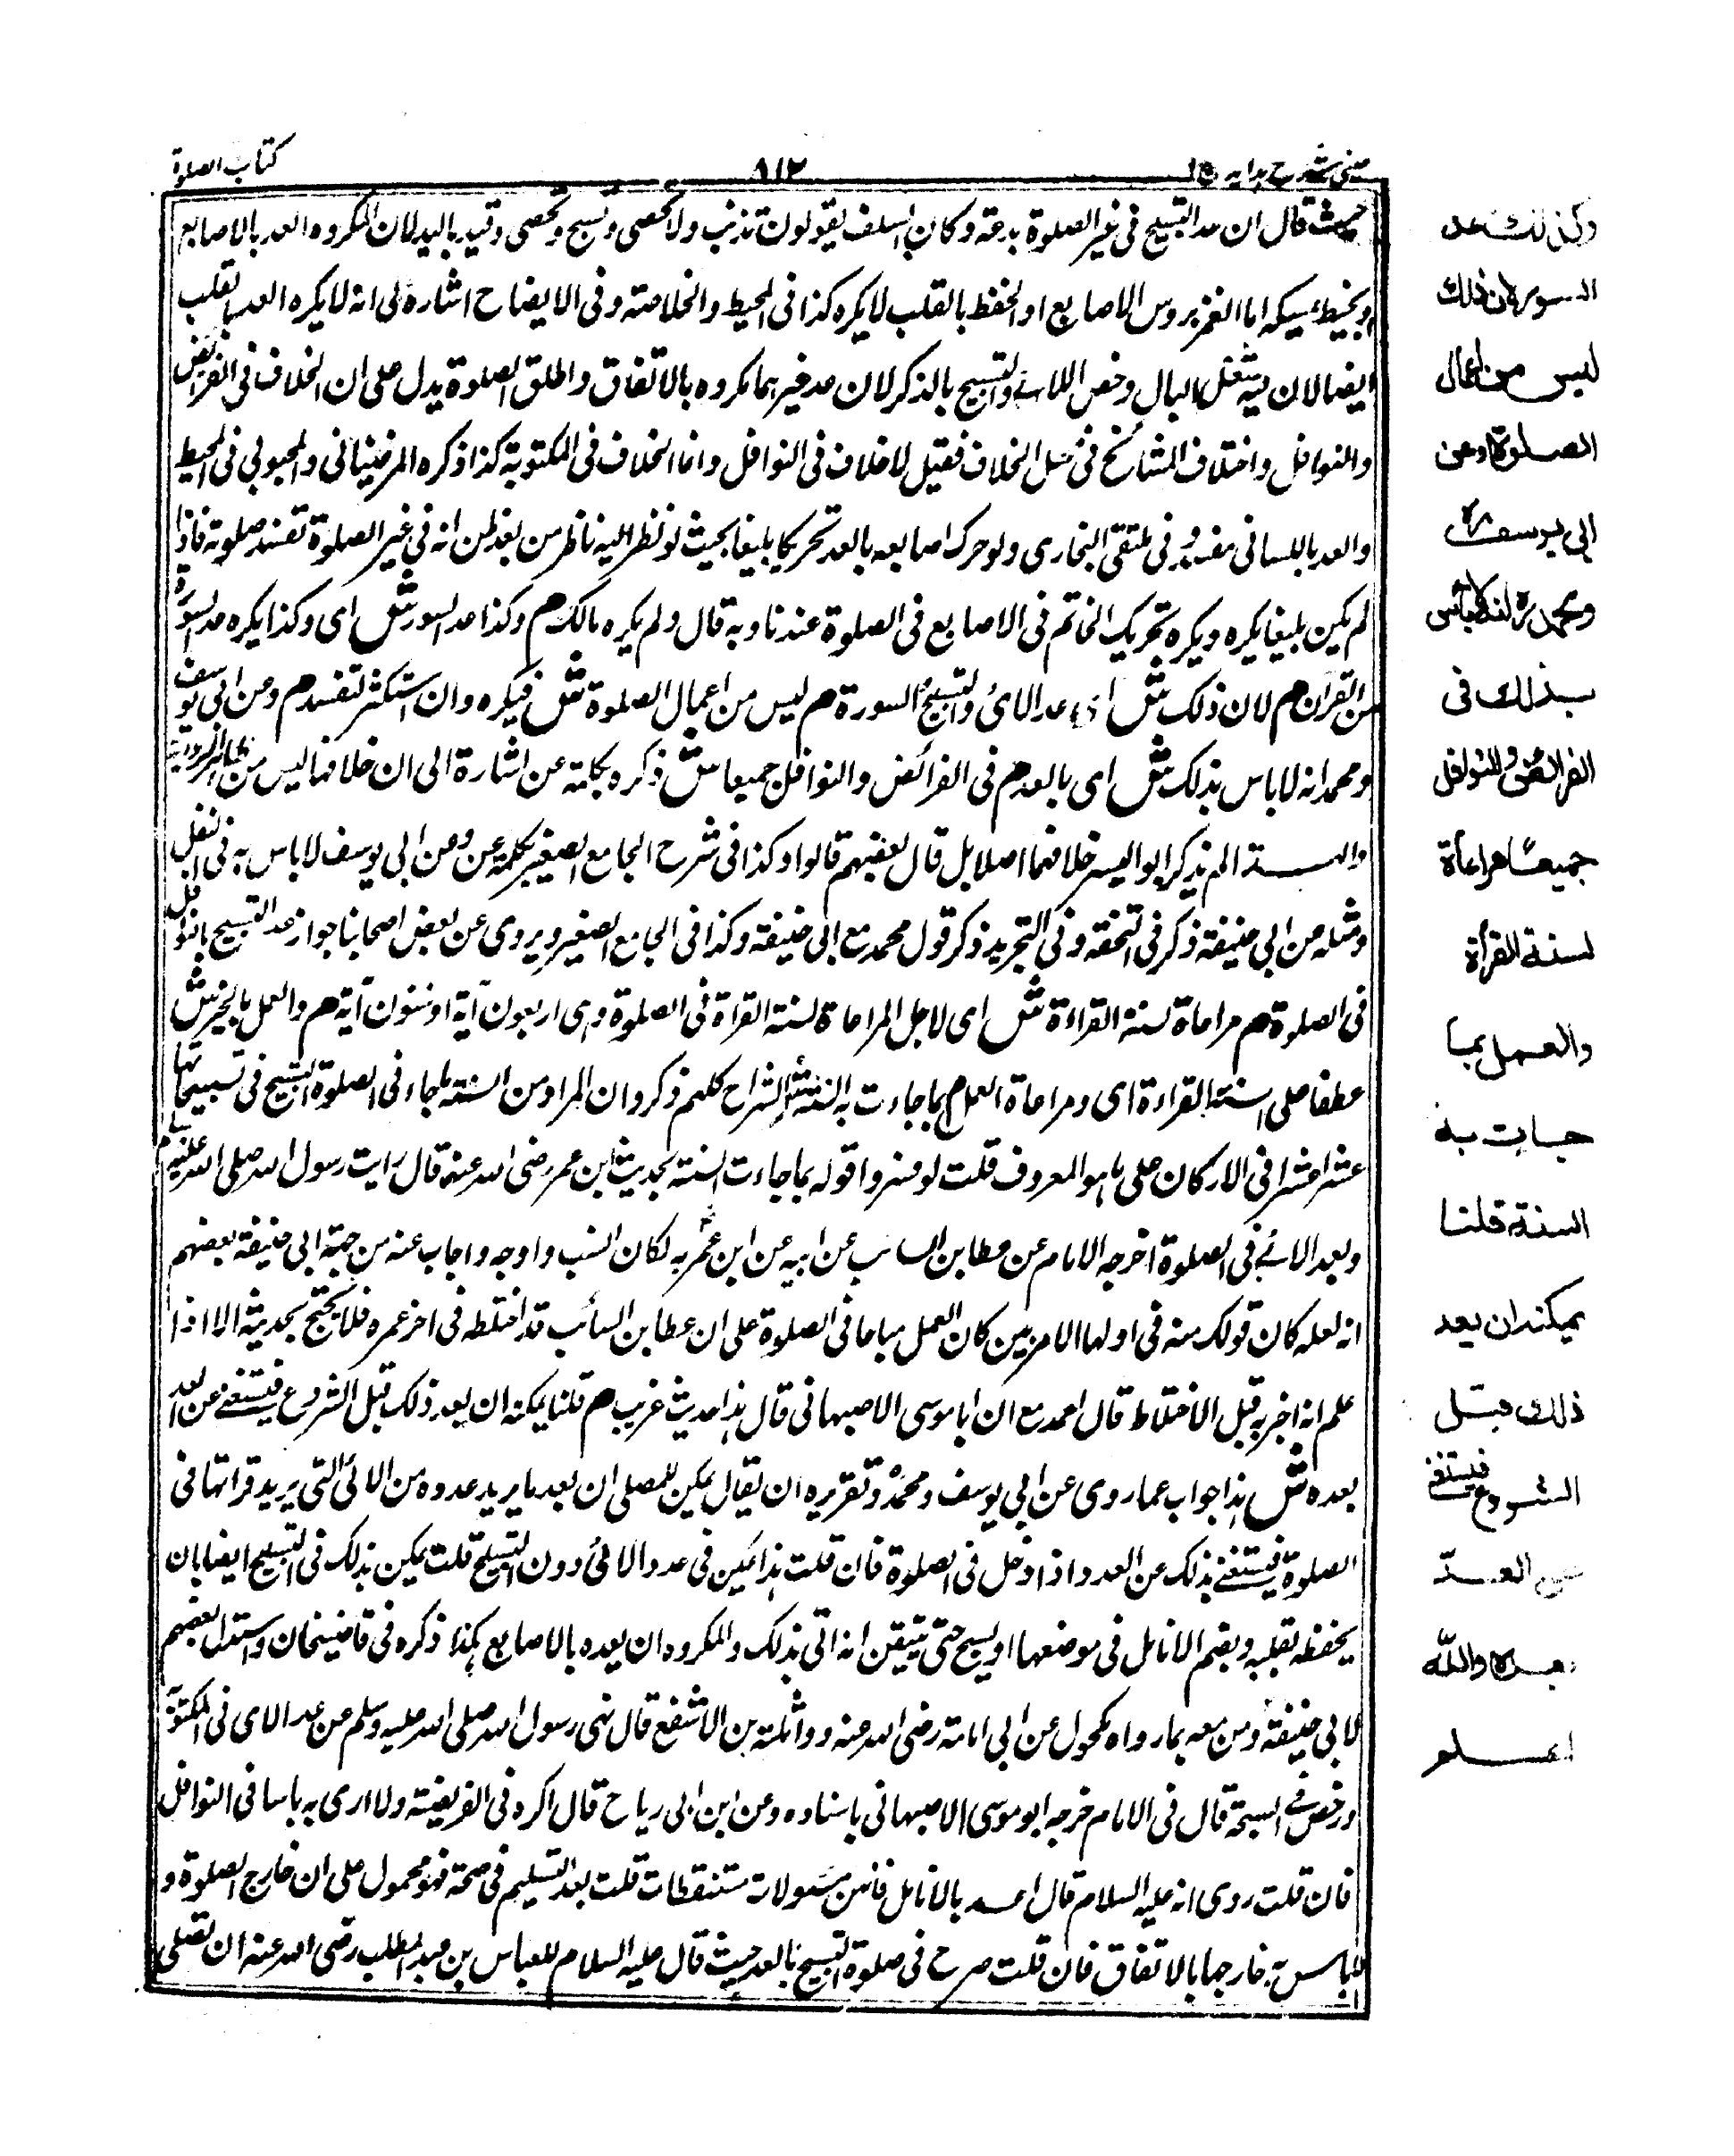 عینی شرح ہدایہ ج ۱
۸۱۲
كتاب الصلوة
حيث قال ان عد التسبيح فى غير الصلوة بدعة وكان السلف يقولون نذنب ولا نحصى ونسبح ونحصى وقيد باليد لان المكروه العد بالاصابع
او بخيط يمسكه اما الغمز بروس الاصابع او الحفظ بالقلب لا يكره كذا فى المحيط والخلاصة وفى الايضاح اشارة الى انه لا يكره العد بالقلب
ايضا لان فيه شغل البال وخص اللائے والتسبيح بالذكر لان عد غيرهما مكروه بالاتفاق واطلق الصلوة يدل على ان الخلاف فى الفرائض
والنوافل واختلف المشائخ فى محل الخلاف فقيل لا خلاف فى النوافل وانما الخلاف فى المكتوبة كذا ذكره المرغينانى والمحبوبى فى المحيط
والعد باللسانى مفسد وفى ملتقى البخارى ولو حرك اصابعه بالعد تحريكا بليغا بحيث لو نظر اليه ناظر من بعد ظن انه فى غير الصلوة تفسد صلوته فاذا
لم يكن بليغا يكره ويكره تحريك الخاتم فى الاصابع فى الصلوة عندنا وبه قال ولم يكره مالك م وكذا عد السور ش اى وكذا يكره عد السورة
من القرآن م لان ذلك ش اى عد الآئ والتسبيح السورة م ليس من اعمال الصلوة ش فيكره وان استكثر تفسد م وعن ابى يوسف
ومحمد انه لا باس بذلك ش اى بالعد م فى الفرائض والنوافل جميعا ش ذكره بكلمة عن اشارة الى ان خلافهما ليس من ظاهر الرواية
والسـنة الم يذكر ابو اليسر خلافهما اصلا بل قال بعضهم قالوا وكذا فى شرح الجامع الصغير بكلمة عن وعن ابى يوسف لا باس به فى النفل
ومثله عن ابى حنيفة ذكر فى التحفة وفى التجريد ذكر قول محمد مع ابى حنيفة وكذا فى الجامع الصغير ويروى عن بعض اصحابنا جواز عد التسبيح بالنوافل
فى الصلوة م مراعاة لسنة القراءة ش اى لاجل المراعاة لسنة القراة فى الصلوة وهى اربعون آية او ستون آية م والعمل بالجر ش
عطفا على السنة القراءة اى ومراعاة العمل م بما جاءت به السنة ش الشراح كلهم ذكروا ان المراد من السنة ما جاء فى الصلوة التسبيح فى تسبيحاتها
عشرا عشرا فى الاركان على ما هو المعروف قلت لو فسروا قوله بما جاءت السنة بحديث ابن عمر رضى الله عنهما قال رايت رسول الله صلى الله عليه وسلم
ويعد الائے فى الصلوة اخرجه الامام عن عطا بن السائب عن ابيه عن ابن عمر به لكان انسب واوجه واجاب عنه من جهة ابى حنيفة بعضهم
انه لعله كان قولك منه فى اولها الامر حين كان العمل مباحا فى الصلوة على ان عطا بن السائب قد اختلطه فى اخر عمره فلا يحتج بحديثه الا اذا
علم انه اخبر به قبل الاختلاط قال احمد مع ان ابا موسى الاصبهانى قال هذا حديث غريب م قلنا يمكنه ان يعد ذلك قبل الشروع فيستغنے عن العد
بعده ش هذا جواب عما روى عن ابى يوسف ومحمد وتقريره ان يقال يمكن للمصلى ان يعد ما يريد عدوه من الآئ التى يريد قراتها فى
الصلوة فيستغنے بذلك عن العدد اذا دخل فى الصلوة فان قلت هذا يمكن فى عدد الآئ دون التسبيح قلت يمكن بذلك فى التسبيح ايضا بان
يحفظه بقلبه ويضم الانامل فى موضعها او يسبح حتى يتيقن انه اتى بذلك والمكروه ان يعده بالاصابع هكذا ذكره فى قاضيخان واستدل بعضهم
لابى حنيفة ومن معه بما رواه مكحول عن ابى امامة رضى الله عنه وواثلة بن الاشفع قال نهى رسول الله صلى الله عليه وسلم عن عد الآى فى المكتوبة
ورخص فے السبحة قال فى الامام خرجه ابو موسى الاصبهانى باسناده وعن ابن ابى رباح قال اكره فى الفريضة ولا ارى به باسا فى النوافل
فان قلت روى انه عليه السلام قال اعـد بالانامل فانهن مسئولات مستنقطات قلت بعد التسليم فى صحة فهو محمول على ان خارج الصلوة و
لا باس به خارجها بالاتفاق فان قلت صرح فى صلوة التسبيح بالعد حيث قال عليه السلام للعباس بن عبد المطلب رضى الله عنه ان تصلى
وكذلك عد
السور لان ذلك
ليس من اعمال
الصلوة وعن
ابى يوسف رح
ومحمد رح انه لا باس
بذلك فى
الفرائض والنوافل
جميعا مراعاة
لسنة القرأة
والعمل بما
جاءت به
السنة قلنا
يمكنه ان يعد
ذلك قبل
الشروع فيستغنے
عن العد
بعده والله
اعلم